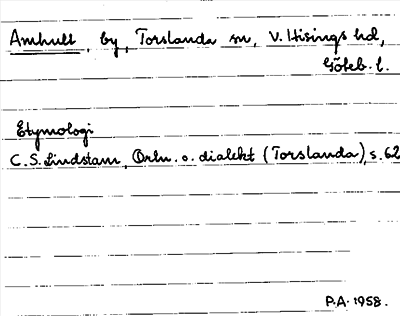 Amhult, by, Torslanda sn, V. Hisings hd,
Göteb. l.
Etymologi
C. S. Lindstam, Ortn. o. dialekt (Torslanda), s. 62
P.A. 1958.